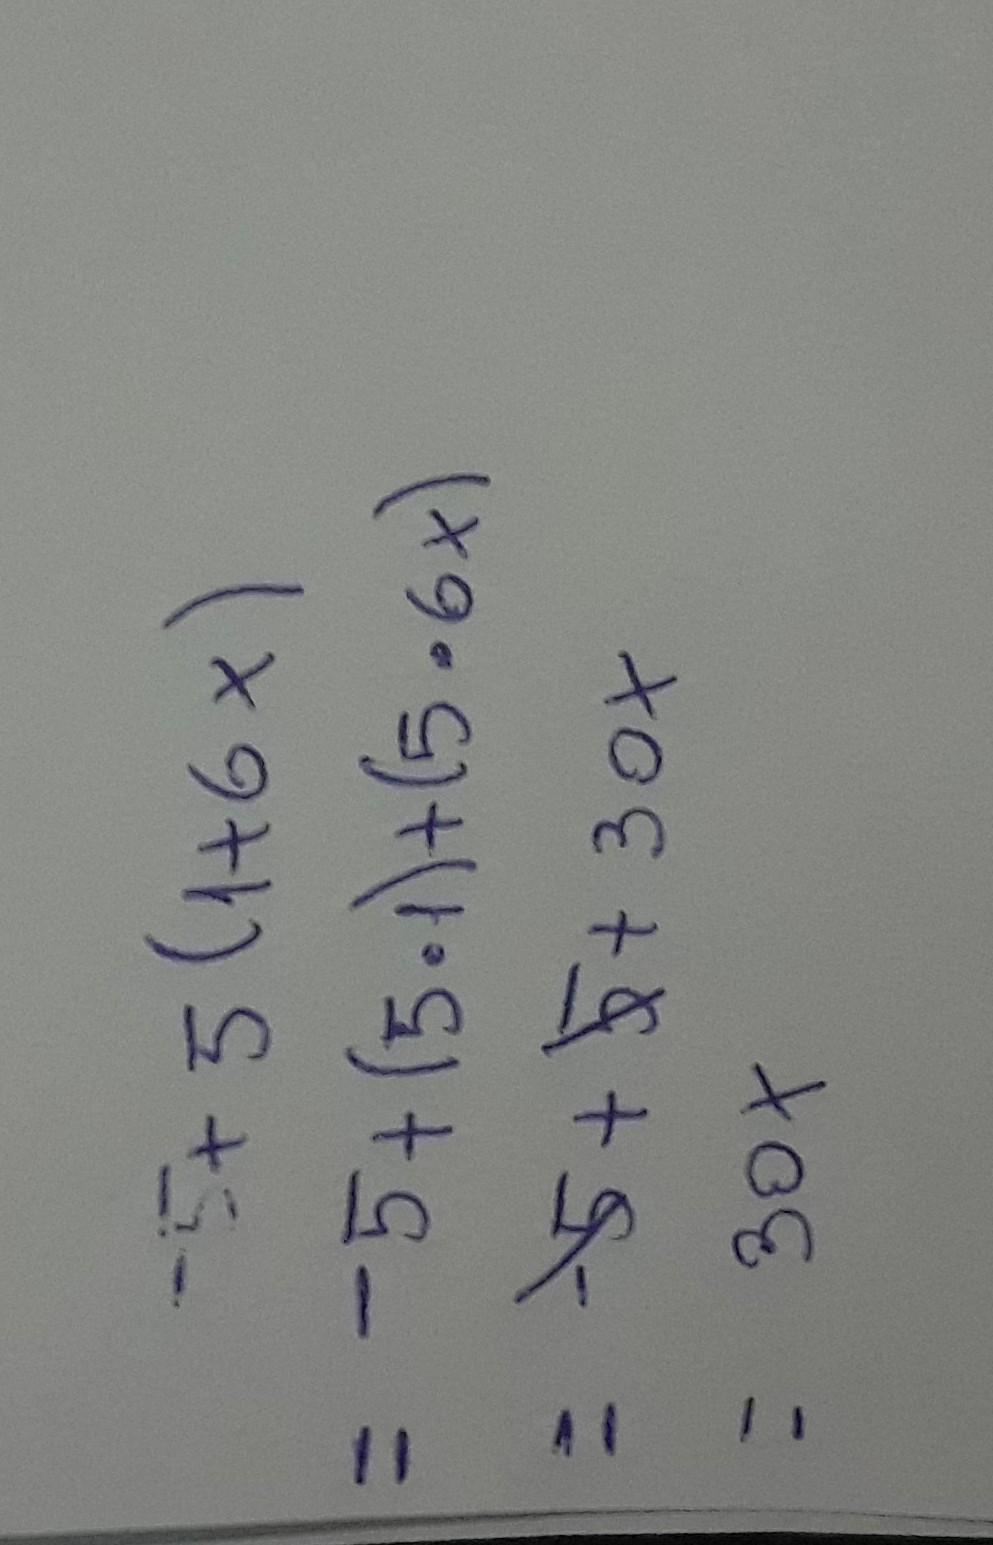 -5 + 5 (1+6x)
= -5 + (5•1)+(5•6x)
= -5 + 5 + 30x
= 30x